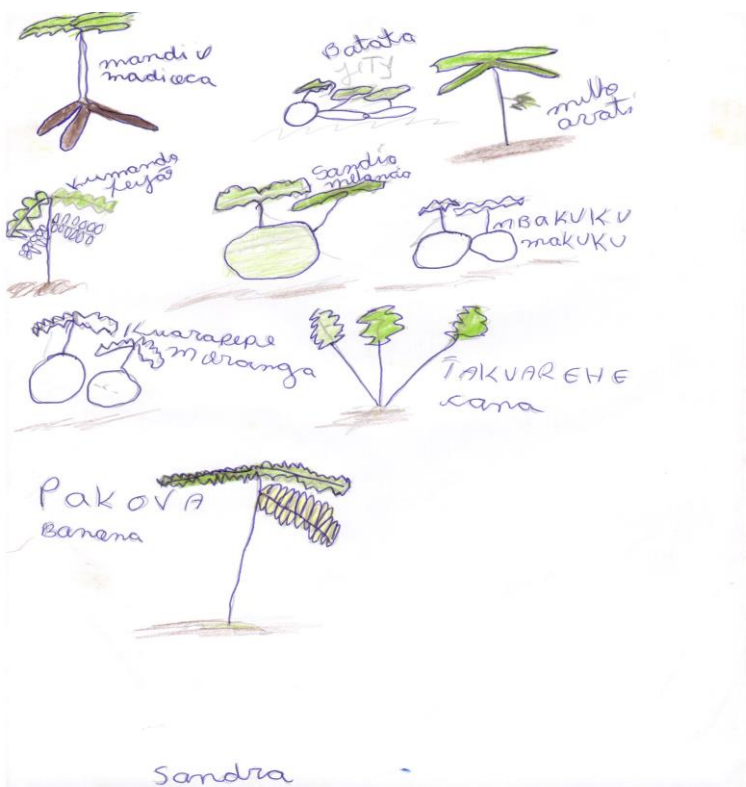 mandi v
madioca
Batata
JITY
milho
avati
kumanda
feijão
Sandia
melancia
MBAKUKU
MAKUKU
Kuarapepe
moranga
TAKUAREHE
cana
PAKOVA
Banana
Sandra